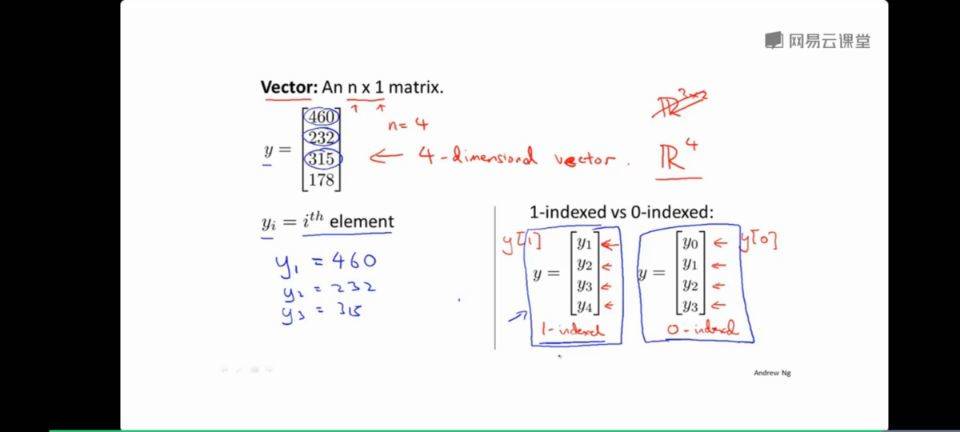 网易云课堂
Vector: An n x 1 matrix.
n = 4
y = [460 232 315 178]
← 4-dimensional vector.
ℝ^3×2
ℝ^4
y_i = i^th element
y_1 = 460
y_2 = 232
y_3 = 315
1-indexed vs 0-indexed:
y[1]
y = [y_1 y_2 y_3 y_4]
1-indexed
y = [y_0 y_1 y_2 y_3]
y[0]
0-indexed
Andrew Ng